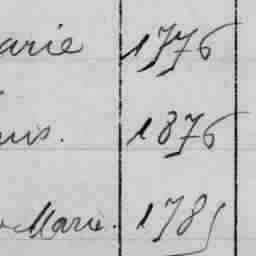 arie 1776
ns. 1876
Marie. 1785